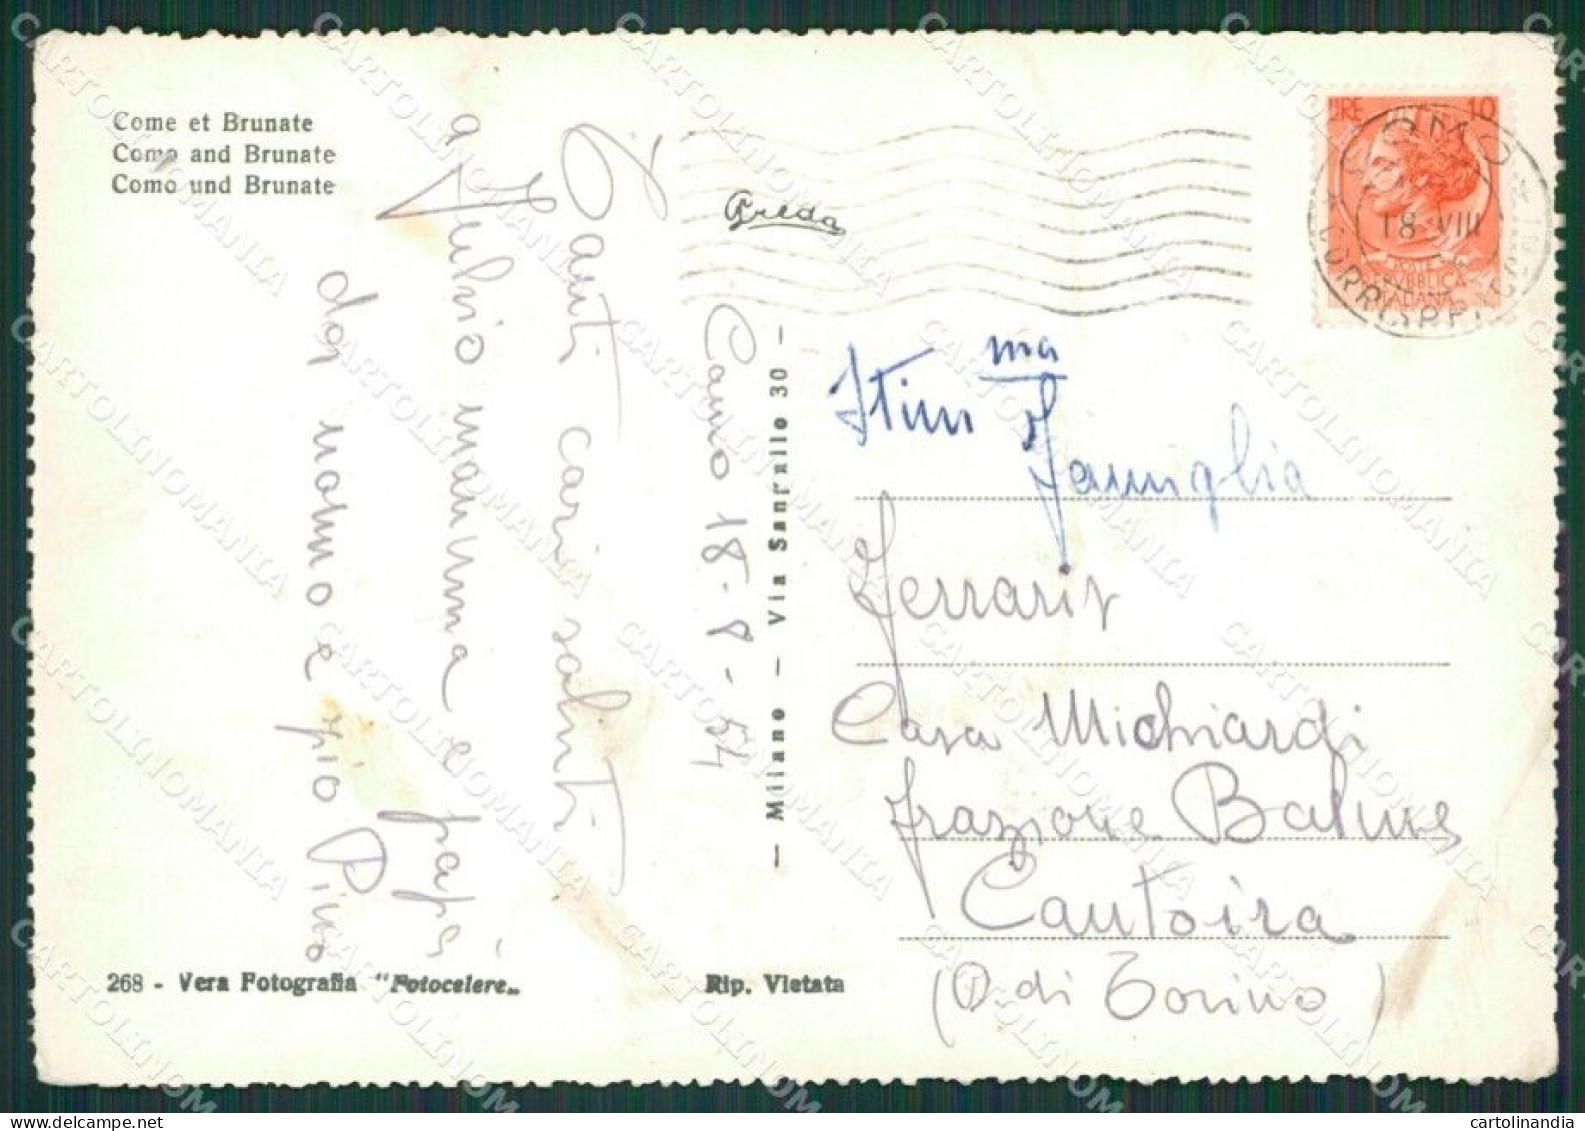 Come et Brunate
Como and Brunate
Como und Brunate
Breda
LIRE 10
COMO
18 VIII
CORRISP. PACCHI
POSTE
REPUBBLICA
ITALIANA
Como 18-8-54
Tanti cari saluti
a Fulvio mamma e papà
da nonno e zio Pino
— Milano — Via Sanrallo 30 —
Stim ma
Famiglia
Ferraris
Casa Michiardi
frazione Balme
Cantoira
(P. di Torino)
268 - Vera Fotografia "Fotocelere"
Rip. Vietata
CARTOLINOMANIA
cartolinandia